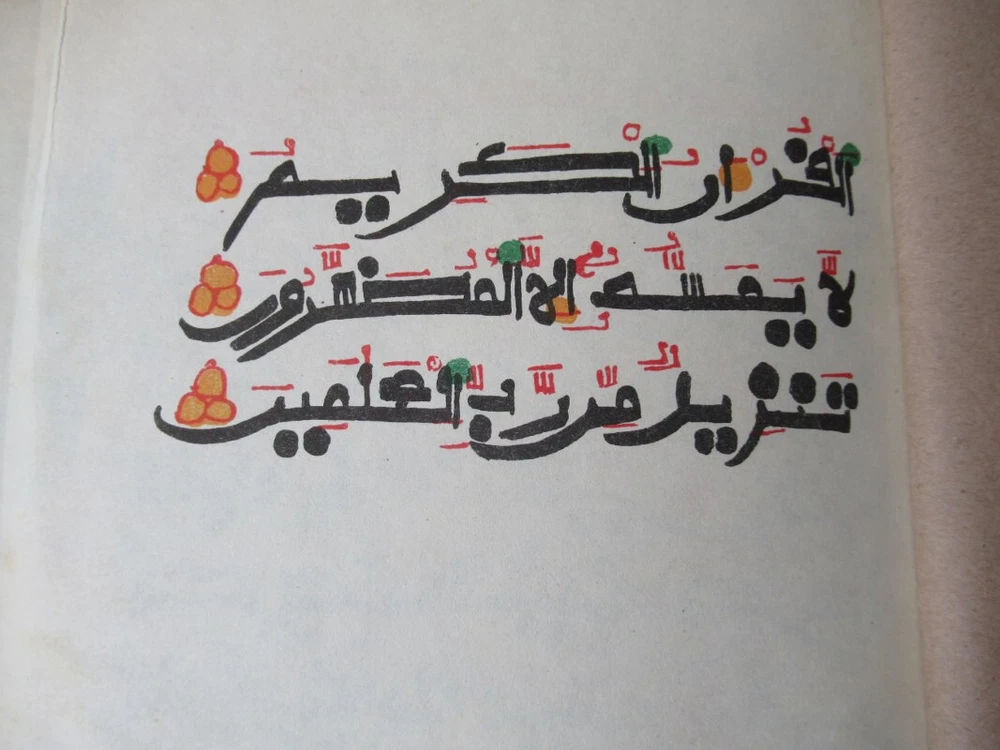 القرءان الكريم
لا يمسه إلا المطهرون
تنزيل من رب العلمين